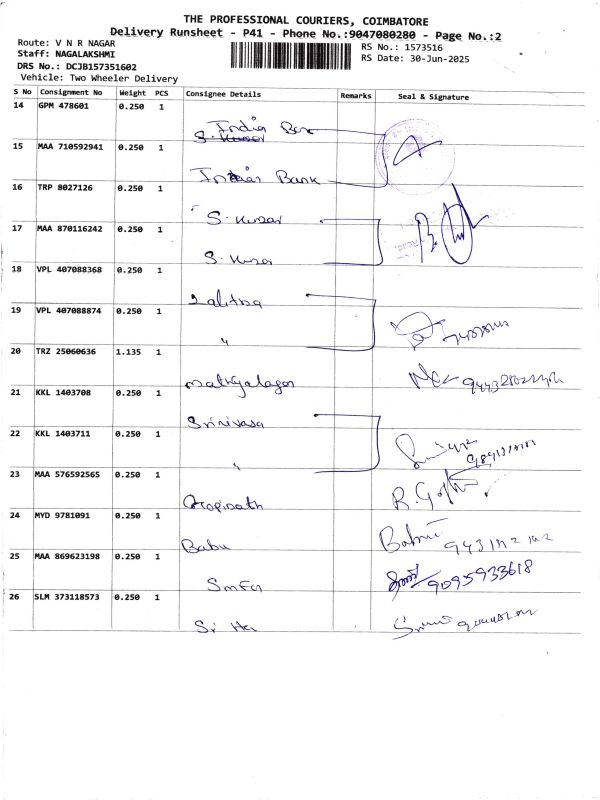 THE PROFESSIONAL COURIERS, COIMBATORE
Delivery Runsheet - P41 - Phone No.:9047080280 - Page No.:2
Route: V N R NAGAR
Staff: NAGALAKSHMI
DRS No.: DCJB157351602
Vehicle: Two Wheeler Delivery
RS No.: 1573516
RS Date: 30-Jun-2025
S No Consignment No Weight PCS Consignee Details Remarks Seal & Signature
14 GPM 478601 0.250 1
India
S. Kumar
15 MAA 710592941 0.250 1
Indian Bank
16 TRP 8027126 0.250 1
S. Kumar
17 MAA 870116242 0.250 1
S. Kumar
18 VPL 407088368 0.250 1
Lalitha
19 VPL 407088874 0.250 1
"
20 TRZ 25060636 1.135 1
21 KKL 1403708 0.250 1
Srinivasa
22 KKL 1403711 0.250 1
"
23 MAA 576592565 0.250 1
Gopinath R. Gopi
24 MYD 9781091 0.250 1
Babu Babu
25 MAA 869623198 0.250 1
9095933618
26 SLM 373118573 0.250 1
Sri